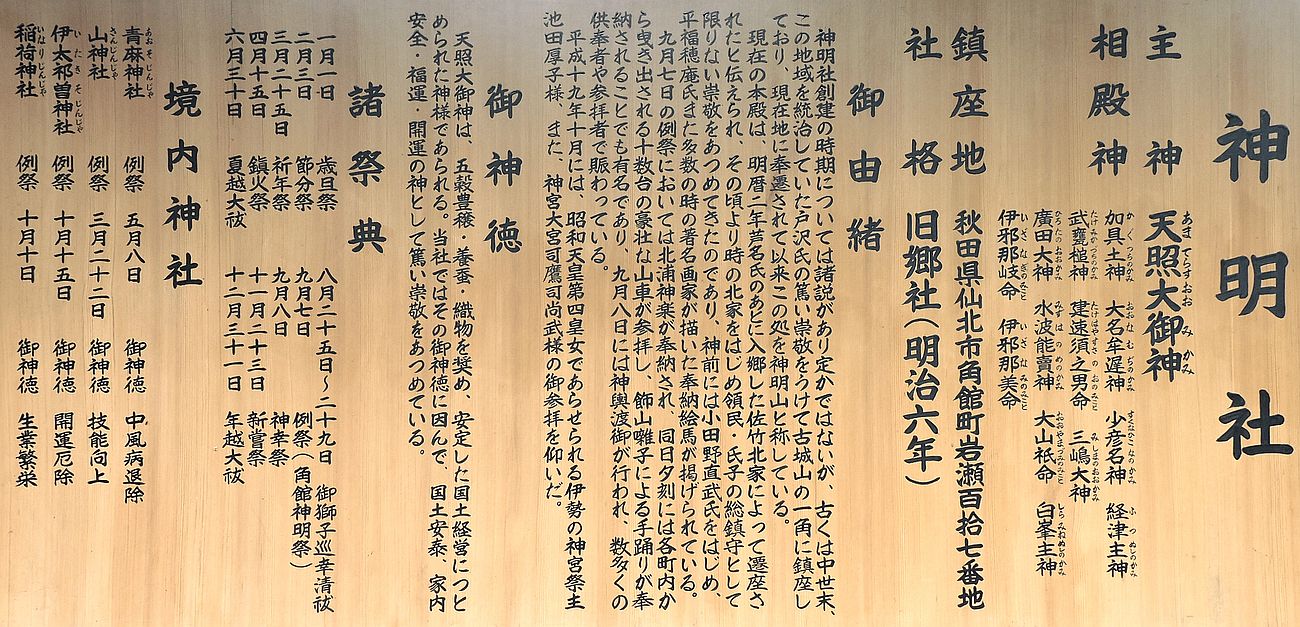 神明社
主神 天照大御神
あまてらすおおみかみ
相殿神 加具土神 大名牟遅神 少彦名神 経津主神
かぐつちのかみ おおなむぢのかみ すなひこなのかみ ふつぬしのかみ
武甕槌神 建速須之男命 三嶋大神
たけみかづちのかみ たけはやすさのおのみこと みしまのおおかみ
廣田大神 水波能賣神 大山祇命 白峯主神
ひろたのおおかみ みずはのめのかみ おおやまづみのみこと しらみねぬしのかみ
伊邪那岐命 伊邪那美命
いざなぎのみこと いざなみのみこと
鎮座地 秋田県仙北市角館町岩瀬百拾七番地
社格 旧郷社(明治六年)
御由緒
神明社創建の時期については諸説があり定かではないが、古くは中世末、
この地域を統治していた戸沢氏の篤い崇敬をうけて古城山の一角に鎮座し
ており、現在地に奉遷されて以来この処を神明山と称している。
現在の本殿は、明暦二年芦名氏のあとに入郷した佐竹北家によって遷座さ
れたと伝えられ、その頃より時の北家をはじめ領民・氏子の総鎮守として
限りない崇敬をあつめてきたのであり、神前には小田野直武氏をはじめ、
平福穂庵氏また多数の時の著名画家が描いた奉納絵馬が掲げられている。
九月七日の例祭においては北浦神楽が奉納され、同日夕刻には各町内か
ら曳き出される十数台の豪壮な山車が参拝し、飾山囃子による手踊りが奉
納されることでも有名であり、九月八日には神輿渡御が行われ、数多くの
供奉者や参拝者で賑わっている。
平成十九年十月には、昭和天皇第四皇女であらせられる伊勢の神宮祭主
池田厚子様、また、神宮大宮司鷹司尚武様の御参拝を仰いだ。
御神徳
天照大御神は、五穀豊穣・養蚕・織物を奨め、安定した国土経営につと
められた神様であられる。当社ではその御神徳に因んで、国土安泰、家内
安全・福運・開運の神として篤い崇敬をあつめている。
諸祭典
一月一日 歳旦祭 八月二十五日~二十九日 御獅子巡幸清祓
二月三日 節分祭 九月七日 例祭(角館神明祭)
三月二十五日 祈年祭 九月八日 神幸祭
四月十五日 鎮火祭 十一月二十三日 新嘗祭
六月三十日 夏越大祓 十二月三十一日 年越大祓
境内神社
青麻神社 例祭 五月八日 御神徳 中風病退除
あおそじんじゃ
山神社 例祭 三月二十二日 御神徳 技能向上
さんじんじゃ
伊太祁曽神社 例祭 十月十五日 御神徳 開運厄除
いたきそじんじゃ
稲荷神社 例祭 十月十日 御神徳 生業繁栄
いなりじんじゃ